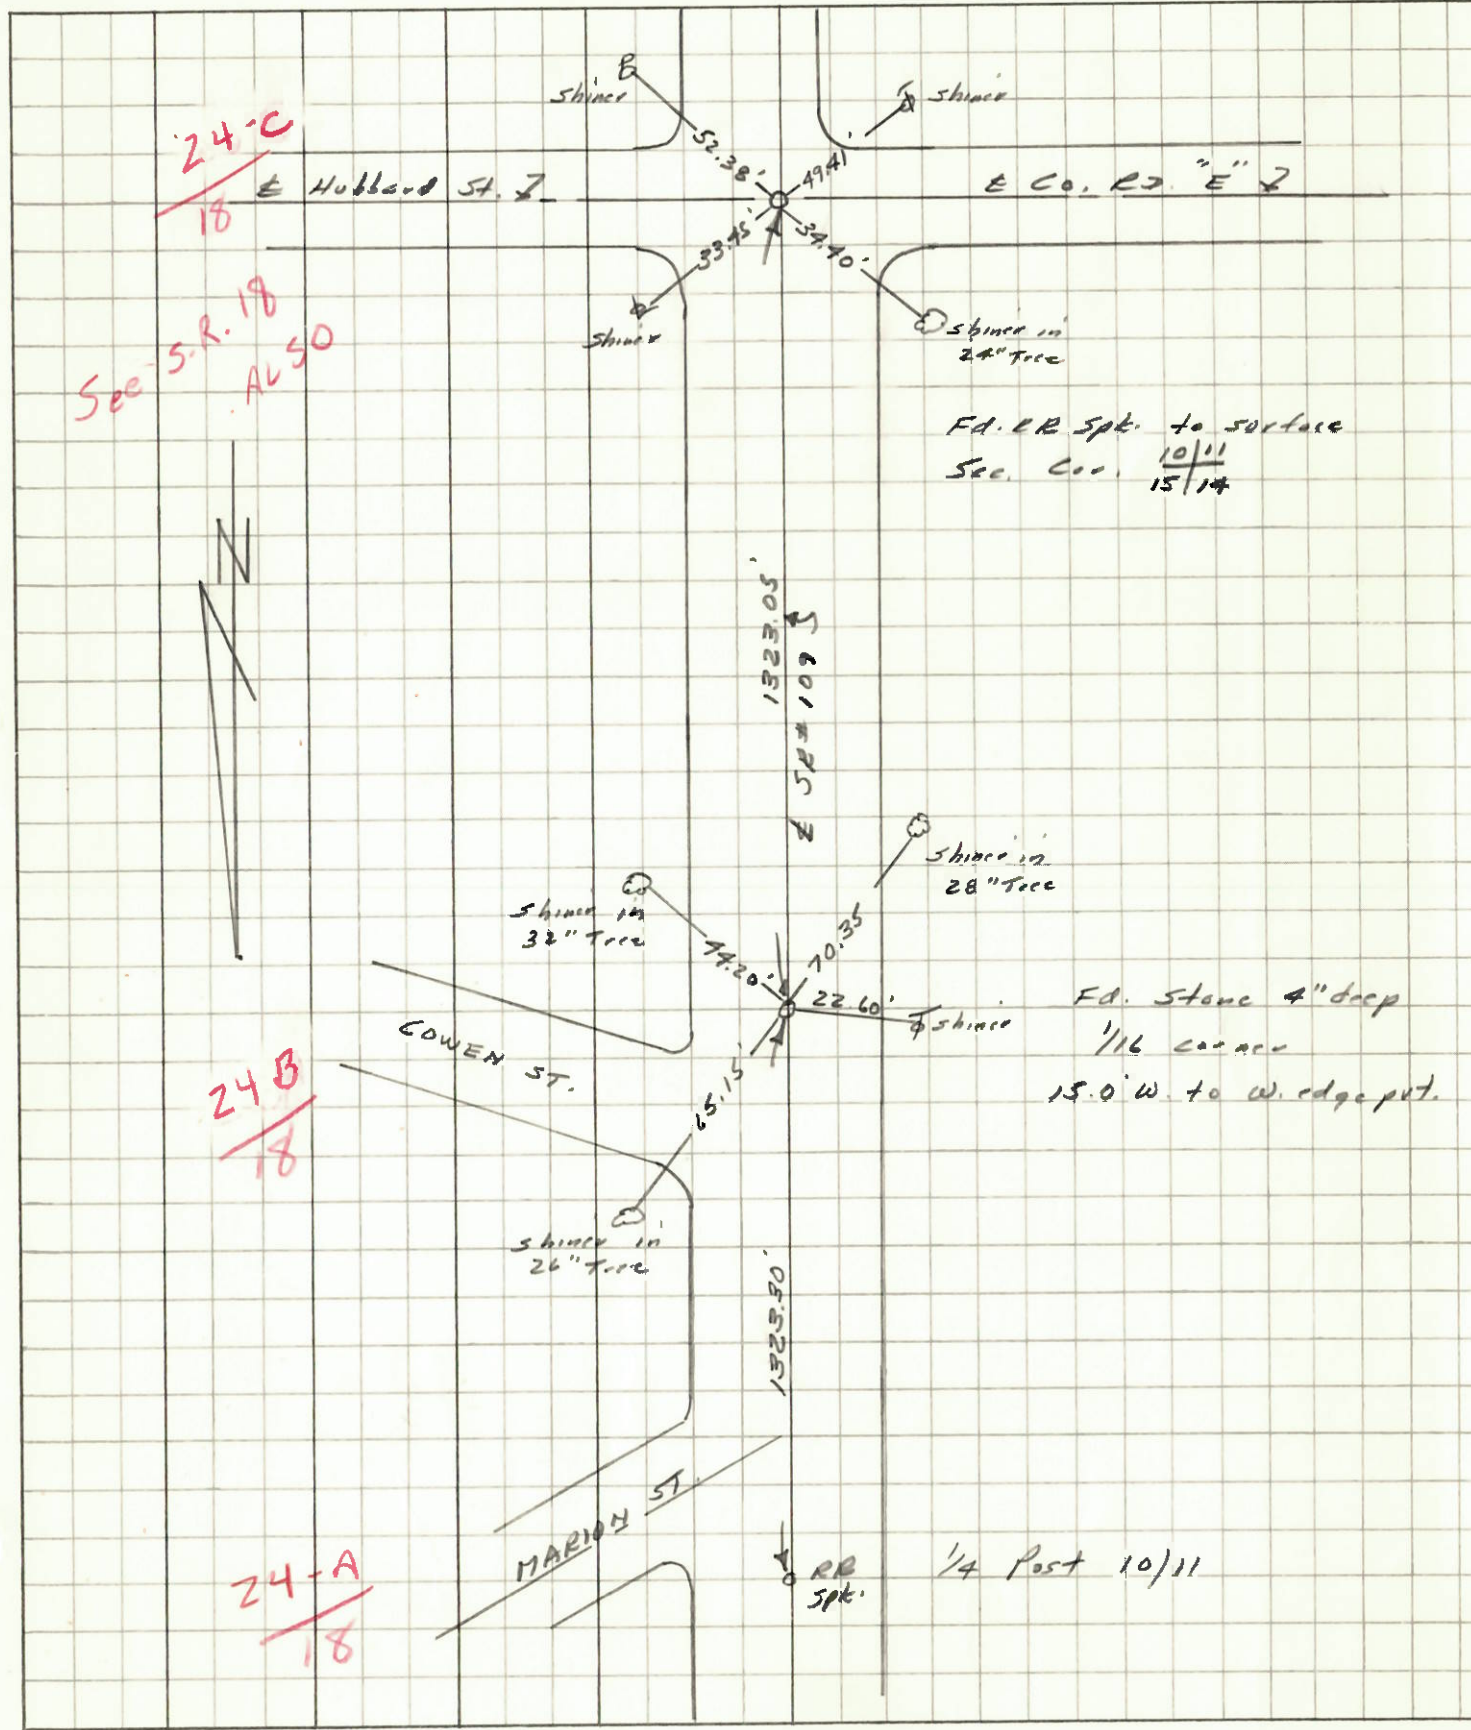 Shiner
Shiner
52.38'
49.41'
24-C
18
℄ Hubbard St.
℄ Co. Rd. "E"
33.45'
34.40'
Shiner
Shiner in
24" Tree
See S.R. 18
ALSO
Fd. RR Spk. to surface
Sec. Cor. 10|11
15|14
N
1323.05'
℄ SR# 109
Shiner in
28" Tree
Shiner in
32" Tree
44.20'
70.35
22.60'
Shiner
Fd. Stone 4" deep
1/16 corner
15.0' W. to W. edge pvt.
COWEN ST.
65.15'
24B
18
Shiner in
26" Tree
1323.30'
MARION ST.
24-A
18
RR
Spk.
1/4 Post 10/11